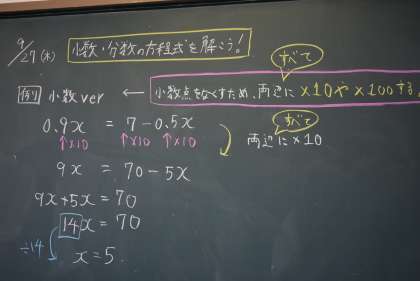 9/27(木)
小数・分数の方程式を解こう!
すべて
例 小数ver ← 小数点をなくすため、両辺に×10や×100する。
0.9x = 7-0.5x
↑×10 ↑×10 ↑×10
すべて
両辺に×10
9x = 70-5x
9x+5x=70
14x=70
÷14
x=5.